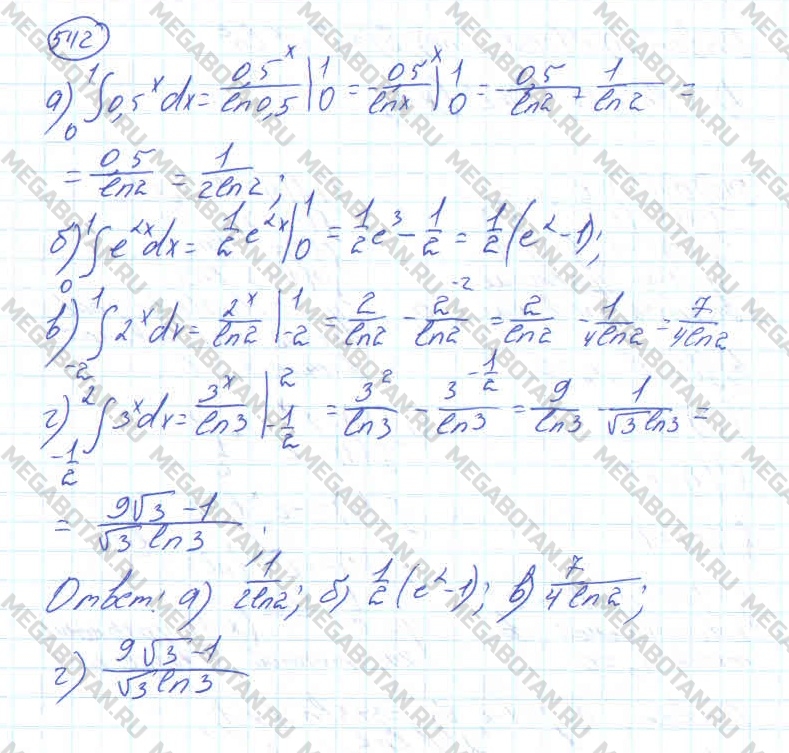 542
а) ∫₀¹ 0,5ˣ dx = 0,5ˣ/ln0,5 |₀¹ = -0,5ˣ/lnx |₀¹ = -0,5/ln2 + 1/ln2 =
= 0,5/ln2 = 1/2ln2;
б) ∫₀¹ e²ˣdx = 1/2 e²ˣ |₀¹ = 1/2 e³ - 1/2 = 1/2 (e² - 1);
в) ∫₋₂¹ 2ˣdx = 2ˣ/ln2 |₋₂¹ = 2/ln2 - 2⁻²/ln2 = 2/ln2 - 1/4ln2 = 7/4ln2
г) ∫_{-1/2}^{2} 3ˣdx = 3ˣ/ln3 |_{-1/2}^{2} = 3²/ln3 - 3^{-1/2}/ln3 = 9/ln3 - 1/√3 ln3 =
= 9√3 - 1/√3 ln3;
Ответ: а) 1/2ln2; б) 1/2 (e² - 1); в) 7/4ln2;
г) 9√3 - 1/√3 ln3